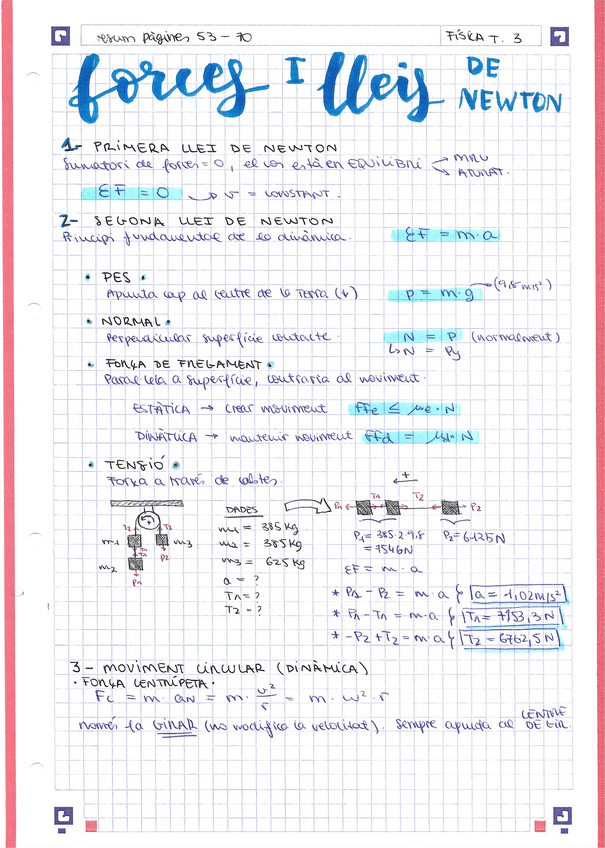 resum pàgines 53-70
FÍSICA T. 3
forces I lleis DE NEWTON
1- PRIMERA LLEI DE NEWTON
Sumatori de forces = 0, el cos està en EQUILIBRI → MRU
→ ATURAT.
ΣF = 0 → v = CONSTANT.
2- SEGONA LLEI DE NEWTON
Principi fundamental de la dinàmica. ΣF = m·a
• PES •
Apunta cap al centre de la Terra (↓) p = m·g → (9,8 m/s²)
• NORMAL •
Perpendicular superfície contacte. N = P (normalment)
↳ N = Py
• FORÇA DE FREGAMENT •
Paral·lela a superfície, contraria al moviment.
ESTÀTICA → crear moviment Ffe ≤ μe·N
DINÀMICA → mantenir moviment Ffd = μd·N
• TENSIÓ •
Força a través de cables.
DADES
m1 = 385 kg
m2 = 385 kg
m3 = 625 kg
a = ?
T1 = ?
T2 = ?
T2 T2
m1 m3
T1 T1 P2
m2
P1
+
P1 T1 T2 P2
P1 = 385·2·9,8
= 7546N
P2 = 6125N
ΣF = m·a
* P1 - P2 = m·a } a = 1,02 m/s²
* P1 - T1 = m·a } T1 = 7153,3 N
* -P2 + T2 = m·a } T2 = 6762,5 N
3- MOVIMENT CIRCULAR (DINÀMICA)
• FORÇA CENTRÍPETA •
Fc = m·aN = m·v²/r = m·ω²·r
només fa GIRAR (no modifica la velocitat). Sempre apunta al CENTRE DE GIR.